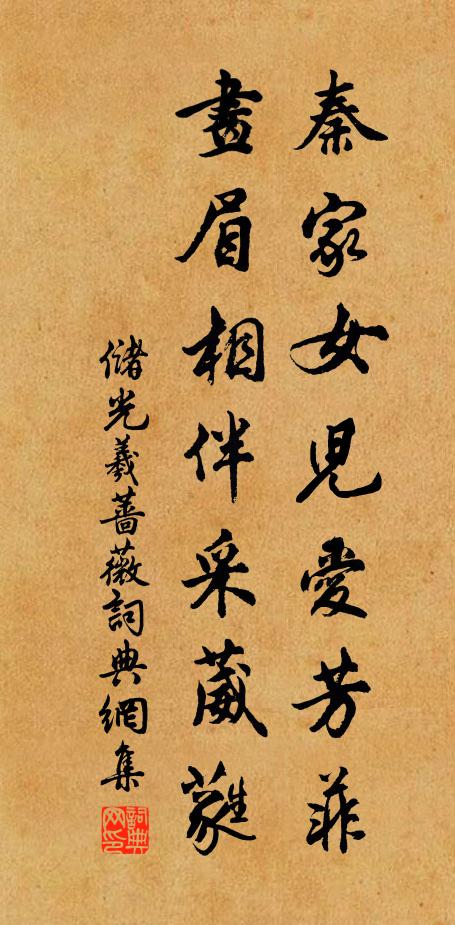 秦家女兒愛芳菲
畫眉相伴采葳蕤
儲光羲薔薇詞典網集
詞典网印